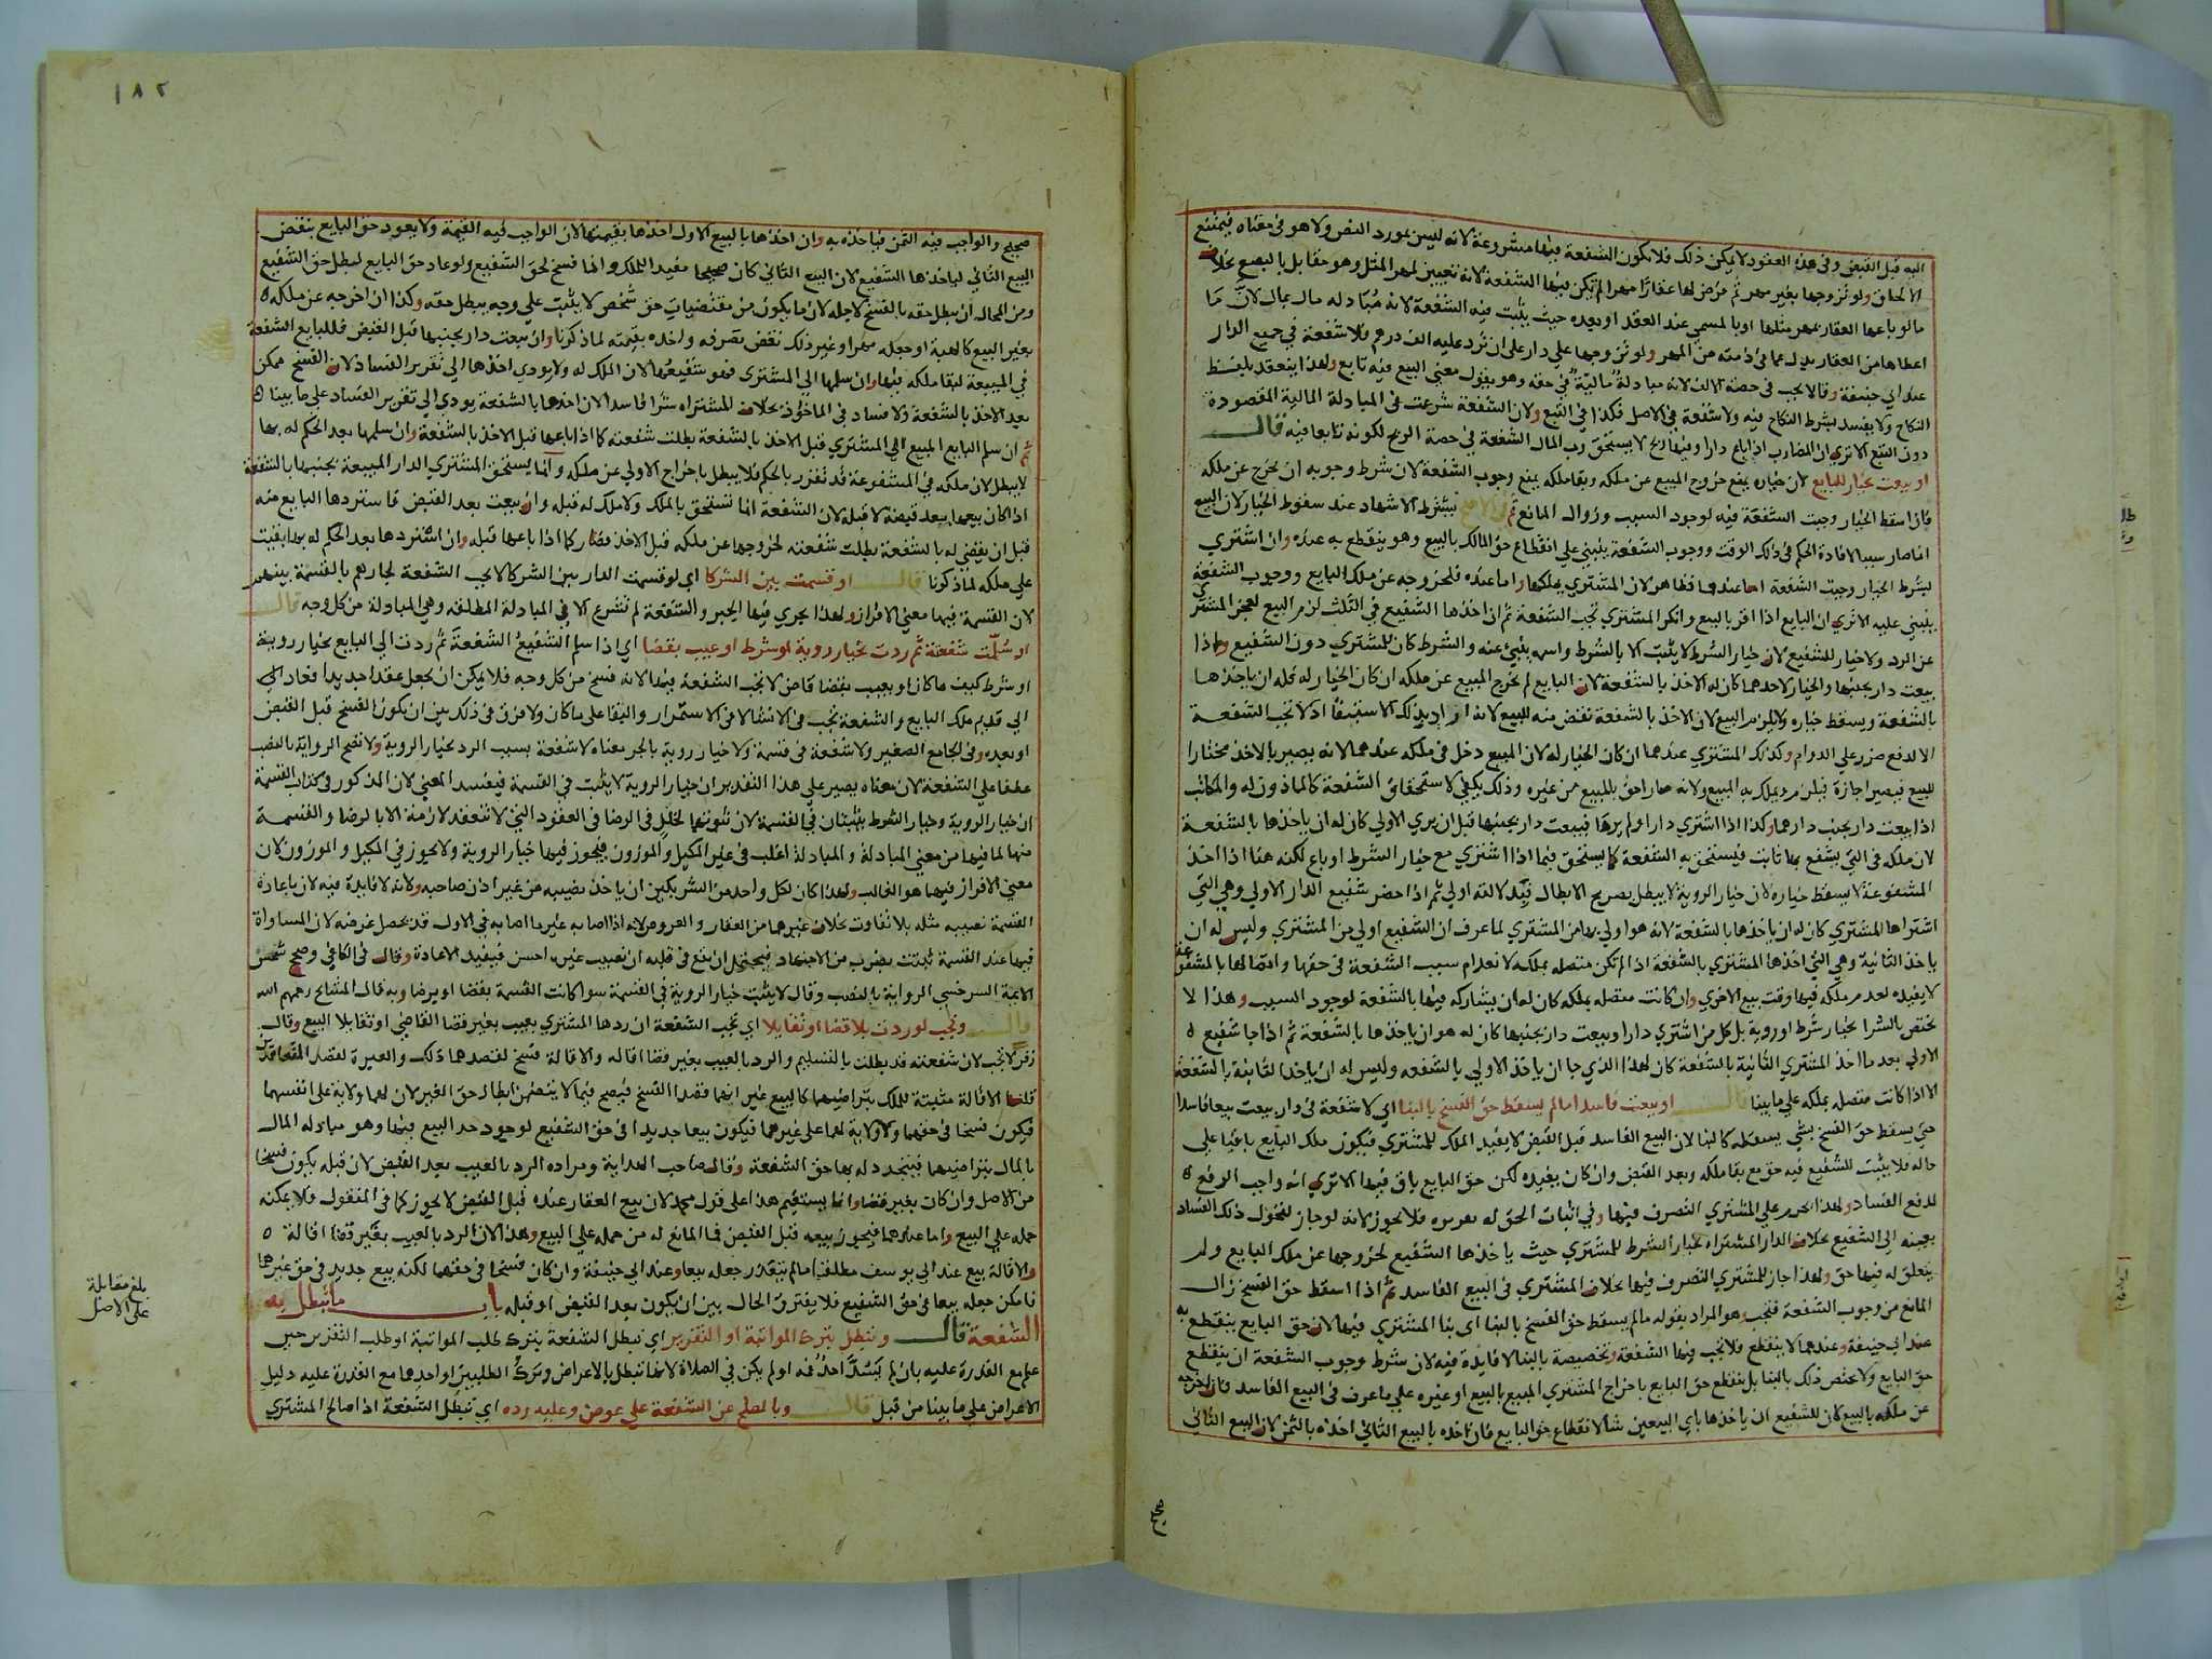 اليه قبل القبض وفي هذه العقود لا يمكن ذلك فلا تكون الشفعة فيها مشروعة لانه ليس بمورد النص ولا هو في معناه فيمتنع
الالحاق ولو تزوجها بغير مهر ثم فرض لها عقارا مهرا لم تكن فيها الشفعة لانه تعيين لمهر المثل وهو مقابل بالبضع بخلاف
ما لو باعها العقار بمهر مثلها او بالمسمي عند العقد او بعده حيث يثبت فيه الشفعة لانه مبادلة مال بمال لان ما
اعطاها من العقار بدل عما في ذمته من المهر ولو تزوجها علي دار علي ان ترد عليه الف درهم فلا شفعة في جميع الدار
عند ابي حنيفة وقالا يجب في حصة الالف لانه مبادلة مالية في حقه وهو يقول معني البيع فيه تابع ولهذا ينعقد بلفظ
النكاح ولا يفسد بشرط النكاح فيه ولا شفعة في الاصل فكذا في التبع ولان الشفعة شرعت في المبادلة المالية المقصودة
دون التبع الا تري ان المضارب اذا باع دارا وفيها ربح لا يستحق رب المال الشفعة في حصة الربح لكونه تابعا فيه قال
او بيعت بخيار للبايع لان خياره يمنع خروج المبيع عن ملكه وبقا ملكه يمنع وجوب الشفعة لان شرط وجوبه ان يخرج عن ملكه
فان اسقط الخيار وجبت الشفعة فيه لوجود السبب وزوال المانع ثم يشترط الاشهاد عند سقوط الخيار لان البيع
انما صار سببا لافادة الحكم في ذلك الوقت ووجوب الشفعة يبتني علي انقطاع حق المالك بالبيع وهو ينقطع به عنده وان اشتري
بشرط الخيار وجبت الشفعة اما عندهما فظاهر لان المشتري يملكها واما عنده فلخروجه عن ملك البايع ووجوب الشفعة
يبتني عليه الا تري ان البايع اذا اقر بالبيع وانكر المشتري تجب الشفعة ثم ان اخذها الشفيع في الثلث لزم البيع لعجز المشتري
عن الرد ولا خيار للشفيع لان خيار الشرط لا يثبت الا بالشرط واسمه ينبئ عنه والشرط كان للمشتري دون الشفيع واذا
بيعت دار بجنبها والخيار لاحدهما كان له الاخذ بالشفعة لان البايع لم يخرج المبيع عن ملكه ان كان الخيار له فله ان ياخذها
بالشفعة ويسقط خياره ولا يلزم البيع لان الاخذ بالشفعة نقض منه للبيع لانه اراد بذلك الاستبقا اذ لا تجب الشفعة
الا لدفع ضرر علي الدوام وكذلك المشتري عندهما ان كان الخيار له لان المبيع دخل في ملكه عندهما لانه يصير بالاخذ مختارا
للبيع فيصير اجازة فيلزم ويملك به المبيع ولانه صار احق بالمبيع من غيره وذلك يكفي لاستحقاق الشفعة كالماذون له والمكاتب
اذا بيعت دار بجنب دارهما وكذا اذا اشتري دارا ولم يرها فبيعت دار بجنبها قبل ان يري الاولي كان له ان ياخذها بالشفعة
لان ملكه في التي يشفع بها ثابت فيستحق به الشفعة كما يستحق فيما اذا اشتري مع خيار الشرط او باع لكنه هنا اذا اخذ
المشفوعة لا يسقط خياره لان خيار الروية لا يبطل بصريح الابطال فبدلالته اولي ثم اذا حضر شفيع الدار الاولي وهي التي
اشتراها المشتري كان له ان ياخذها بالشفعة لانه هو اولي بها من المشتري لما عرف ان الشفيع اولي من المشتري وليس له ان
ياخذ الثانية وهي التي اخذها المشتري بالشفعة اذا لم تكن متصله بملكه لانعدام سبب الشفعة في حقها واتصالها بالمشفوعة
لا يفيده لعدم ملكه فيها وقت بيع الاخري وان كانت متصله بملكه كان له ان يشاركه فيها بالشفعة لوجود السبب وهذا لا
يختص بالشرا بخيار شرط او روية بل كل من اشتري دارا وبيعت دار بجنبها كان له هو ان ياخذها بالشفعة ثم اذا جا شفيع
الاولي بعد ما اخذ المشتري الثانية بالشفعة كان لهذا الذي جا ان ياخذ الاولي بالشفعه وليس له ان ياخذ الثانية بالشفعة
الا اذا كانت متصله بملكه علي ما بينا قال او بيعت فاسدا ما لم يسقط حق الفسخ بالبنا اي لا شفعة في دار بيعت بيعا فاسدا
حتي يسقط حق الفسخ بشي يسقطه كالبنا لان البيع الفاسد قبل القبض لا يفيد الملك للمشتري فيكون ملك البايع باقيا علي
حاله فلا يثبت للشفيع فيه حق مع بقا ملكه وبعد القبض وان كان يفيده لكن حق البايع باق فيها الا تري انه واجب الرفع
لدفع الفساد ولهذا يحرم علي المشتري التصرف فيها وفي اثبات الحق له تقريره فلا يجوز لانه لو جاز لتحول ذلك الفساد
بعينه الي الشفيع بخلاف الدار المشتراه بخيار الشرط للمشتري حيث ياخذها الشفيع لخروجها عن ملك البايع ولم
يتعلق له فيها حق ولهذا جاز للمشتري التصرف فيها بخلاف المشتري في البيع الفاسد ثم اذا اسقط حق الفسخ زال
المانع من وجوب الشفعة فتجب وهو المراد بقوله ما لم يسقط حق الفسخ بالبنا اي بنا المشتري فيها لان حق البايع ينقطع به
عند ابي حنيفة وعندهما لا ينقطع فلا تجب فيها الشفعة وتخصيصه بالبنا لا فايدة فيه لان شرط وجوب الشفعة ان ينقطع
حق البايع ولا يختص ذلك بالبنا بل ينقطع حق البايع باخراج المشتري المبيع بالبيع او غيره علي ما عرف في البيع الفاسد فان اخرجه
عن ملكه بالبيع كان للشفيع ان ياخذها باي البيعين شا لانقطاع حق البايع فان اخذه بالبيع الثاني اخذه بالثمن لان البيع الثاني
صحيح
١٨٢
صحيح والواجب فيه الثمن فياخذه به وان اخذها بالبيع الاول اخذها بقيمتها لان الواجب فيه القيمة ولا يعود حق البايع بنقض
البيع الثاني لياخذها الشفيع لان البيع الثاني كان صحيحا مفيدا للملك وانما فسخ لحق الشفيع ولو عاد حق البايع لبطل حق الشفيع
ومن المحال ان يبطل حقه بالفسخ لاجله لان ما يكون من مقتضيات حق شخص لا يثبت علي وجه يبطل حقه وكذا ان اخرجه عن ملكه
بغير البيع كالهبة او جعله مهرا وغير ذلك نقض تصرفه واخذه بقيمته لما ذكرنا وان بيعت دار بجنبها قبل القبض فللبايع الشفعة
في المبيعة لبقا ملكه فيها وان سلمها الي المشتري فهو شفيعها لان الملك له ولا يودي اخذها الي تقرير الفساد لان الفسخ ممكن
بعد الاخذ بالشفعة ولا فساد في الماخوذ بخلاف المشتراه شرا فاسدا لان اخذها بالشفعة يودي الي تقرير الفساد علي ما بيناه
ثم ان سلم البايع المبيع الي المشتري قبل الاخذ بالشفعة بطلت شفعته كما اذا باعها قبل الاخذ بالشفعة وان سلمها بعد الحكم له بها
لا يبطل لان ملكه في المشفوعة قد تقرر بالحكم فلا يبطل باخراج الاولي عن ملكه وانما يستحق المشتري الدار المبيعة بجنبها بالشفعة
اذا كان بيعها بعد قبضه لا قبله لان الشفعة انما تستحق بالملك ولا ملك له قبله وان بيعت بعد القبض فاستردها البايع منه
قبل ان يقضي له بالشفعة بطلت شفعته لخروجها عن ملكه قبل الاخذ فصار كما اذا باعها قبله وان استردها بعد الحكم له بها بقيت
علي ملكه لما ذكرنا قال او قسمت بين الشركا اي لو قسمت الدار بين الشركا لا يجب الشفعة لجارهم بالقسمة بينهم
لان القسمة فيها معني الافراز ولهذا يجري فيها الجبر والشفعة لم تشرع الا في المبادلة المطلقه وهي المبادلة من كل وجه قال
او سلمت شفعته ثم ردت بخيار روية او شرط او عيب بقضا اي اذا سلم الشفيع الشفعة ثم ردت الي البايع بخيار روية
او شرط كيف ما كان او بعيب بقضا قاض لا تجب الشفعة فيها لانه فسخ من كل وجه فلا يمكن ان يجعل عقدا جديدا فعاد الي
الي قديم ملك البايع والشفعة تجب في الانشا لا في الاستمرار والبقا علي ما كان ولا فرق في ذلك بين ان يكون الفسخ قبل القبض
او بعده وفي الجامع الصغير ولا شفعة في قسمة ولا خيار روية بالجر معناه لا شفعة بسبب الرد بخيار الروية ولا تصح الرواية بالنصب
عطفا علي الشفعة لان معناه يصير علي هذا التقدير ان خيار الروية لا يثبت في القسمة فيفسد المعني لان المذكور في كتاب القسمة
ان خيار الروية وخيار الشرط يثبتان في القسمة لان ثبوتهما لخلل في الرضا في العقود التي لا تنعقد لازمة الا بالرضا والقسمة
منها لما فيها من معني المبادلة والمبادلة اغلب في غير المكيل والموزون فيجوز فيها خيار الروية ولا يجوز في المكيل والموزون لان
معني الافراز فيها هو الغالب ولهذا كان لكل واحد من الشريكين ان ياخذ نصيبه من غير اذن صاحبه ولانه لا فايدة فيه لان باعادة
القسمة نصيبه مثله بلا تفاوت بخلاف غيرهما من العقار والعروض لانه اذا اصابه غير ما اصابه في الاول قد يحصل غرضه لان المساواة
فيها عند القسمة ثبتت بضرب من الاجتهاد فيحتمل ان يقع في قلبه ان نصيب غيره احسن فيفيد الاعادة وقال في الكافي وصحح شمس
الايمة السرخسي الرواية بالنصب وقال لا يثبت خيار الروية في القسمة سوا كانت القسمة بقضا او برضا وبه قال المشايخ رحمهم الله
قال وتجب لو ردت بلا قضا او تقايلا اي تجب الشفعة ان ردها المشتري بعيب بغير قضا القاضي او تقايلا البيع وقال
زفر لا تجب لان شفعته قد بطلت بالتسليم والرد بالعيب بغير قضا اقاله والاقالة فسخ لقصدهما ذلك والعبرة لقصد المتعاقدين
قلنا الاقالة مثبتة للملك بتراضيهما كالبيع غير انهما قصدا الفسخ فيصح فيما لا يتضمن ابطال حق الغير لان لهما ولاية علي انفسهما
فيكون فسخا في حقهما ولا ولاية لهما علي غيرهما فيكون بيعا جديدا في حق الشفيع لوجود حد البيع فيها وهو مبادلة المال
بالمال بتراضيهما فيتجدد له بها حق الشفعة وقال صاحب الهداية ومراده الرد بالعيب بعد القبض لان قبله يكون فسخا
من الاصل وان كان بغير قضا وانما يستقيم هذا علي قول محمد لان بيع العقار عنده قبل القبض لا يجوز كما في المنقول فلا يمكنه
حمله علي البيع واما عندهما فيجوز بيعه قبل القبض فما المانع له من حمله علي البيع وهذا لان الرد بالعيب بغير قضا اقالة
والاقالة بيع عند ابي يوسف مطلقا ما لم يتعذر جعله بيعا وعند ابي حنيفة وان كان فسخا في حقهما لكنه بيع جديد في حق غيرهما
فامكن جعله بيعا في حق الشفيع فلا يفترق الحال بين ان يكون بعد القبض او قبله باب ما تبطل به
الشفعة قال وتبطل بترك المواثبة او التقرير اي تبطل الشفعة بترك طلب المواثبة او طلب التقرير حين
علم مع القدرة عليه بان لم يسد احد فمه او لم يكن في الصلاة لانها تبطل بالاعراض وترك الطلبين او احدهما مع القدرة عليه دليل
الاعراض علي ما بينا من قبل قال وبالصلح عن الشفعة علي عوض وعليه رده اي تبطل الشفعة اذا صالح المشتري
بلغ مقابلة
على الاصل